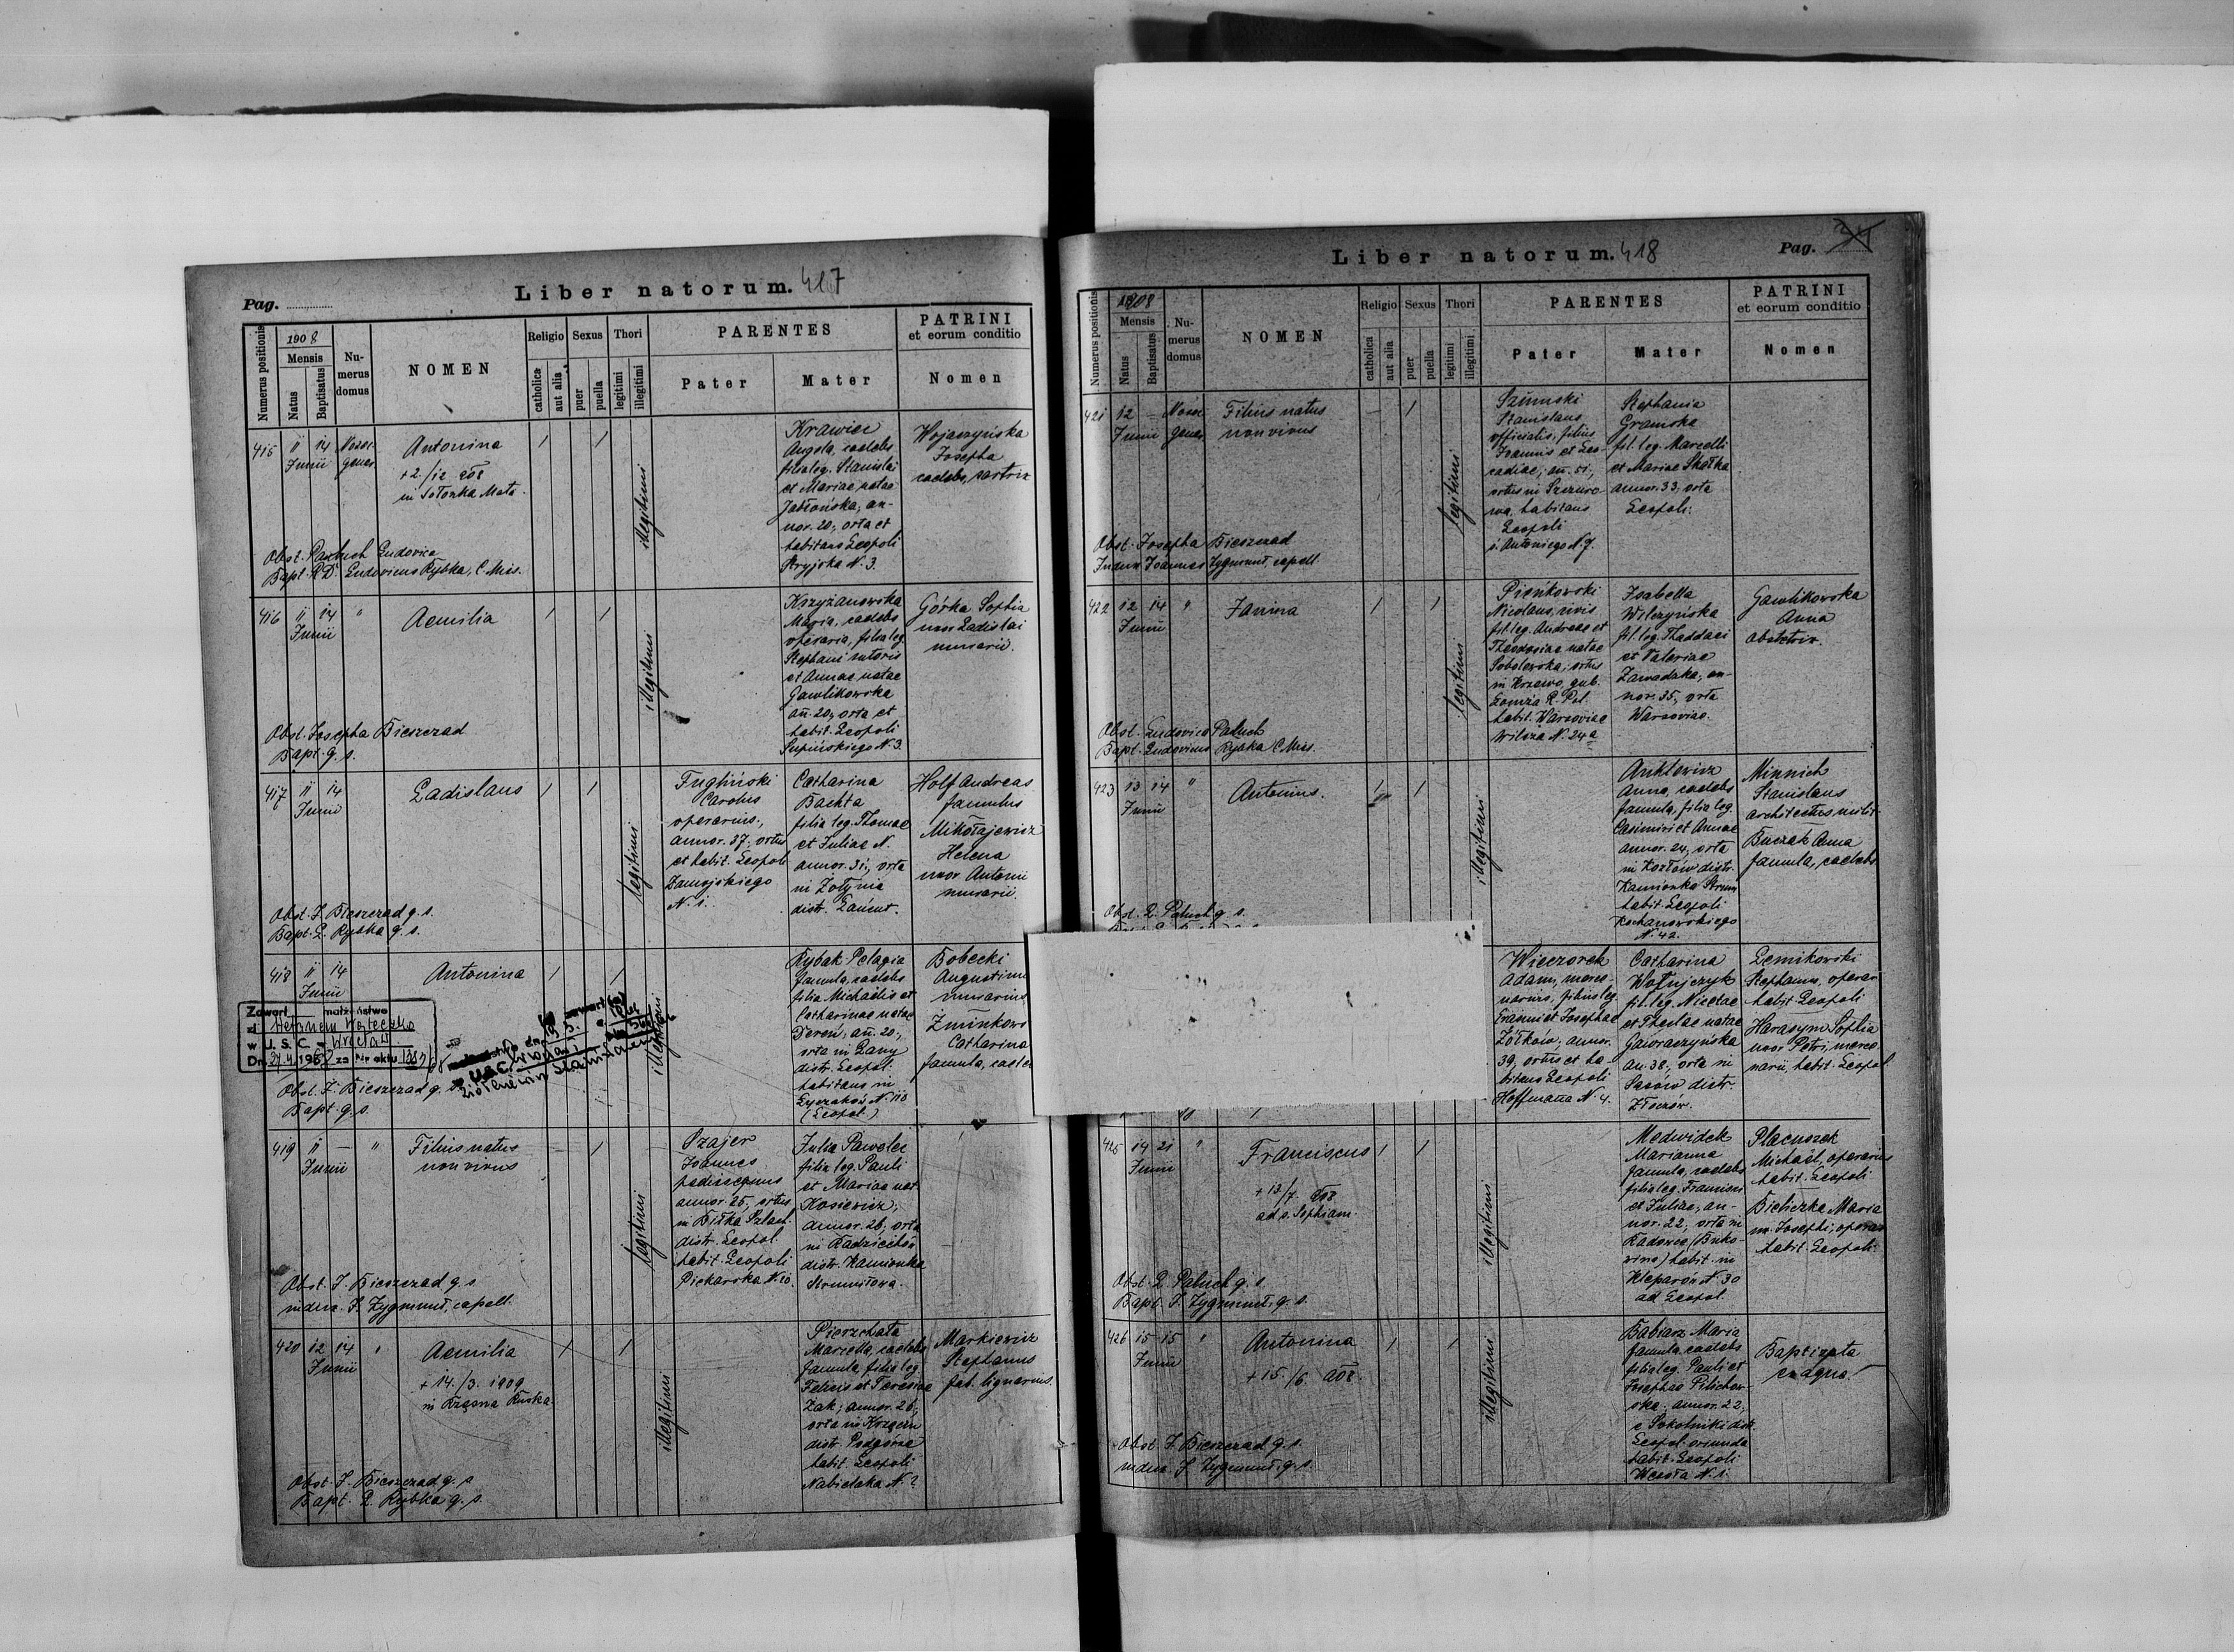 Liber natorum. 417
Pag.
Numerus positionis
1908
Mensis
Natus
Baptisatus
Nu-
merus
domus
NOMEN
Religio
catholica
aut alia
Sexus
puer
puella
Thori
legitimi
illegitimi
PARENTES
Pater
Mater
PATRINI
et eorum conditio
Nomen
415 11 14 Junii
Antonina
+ 2/12 908
illegitimi
Krawiec
Angela, caelebs
filia leg. Stanislai
et Mariae natae
Jabłońska, an-
nor. 20, orta et
habitans Leopoli
Stryjska N. 3.
Wojaczyńska
Josepha
caelebs
Obst. Paluch Ludovica
Bapt. R.D. Ludovicus Rybka, C. Miss.
416 11 14 "
Junii
Aemilia
illegitimi
Krzyżanowska
Maria, caelebs
operaria, filia leg.
Stephani sutoris
et Annae natae
Gawlikowska
an. 20, orta et
habit. Leopoli
Supińskiego N. 3.
Górka Sophia
uxor Ladislai
murarii.
Obst. Josepha Bieszczad
Bapt. q. s.
417 11 14
Junii
Ladislaus
legitimi
Fugliński
Carolus
operarius,
annor. 37, ortus
et habit. Leopoli
Zamojskiego
N. 1.
Catharina
Bachta
filia leg. Thomae
et Juliae N.
annor. 31, orta
in Żołynia
distr. Łańcut.
Holf Andreas
famulus
Mikołajewicz
Helena
uxor Antonii
murarii.
Obst. J. Bieszczad q. s.
Bapt. L. Rybka q. s.
418 11 14
Junii
Antonina
illegitimi
Rybak Pelagia
famula, caelebs
filia Michaelis et
Catharinae natae
Dereń, an. 20,
orta in Łany
distr. Leopol.
habitans in
Łyczaków N. 110
(Leopol.)
Bobecki
Augustinus
murarius
Catharina
famula
Zawarł małżeństwo
z
w U. S. C. Wrocław
Dn. 196 za Nr aktu
Obst. J. Bieszczad q. s.
Bapt. q. s.
419 11 — "
Junii
Filius natus
non vivus
legitimi
Czajer
Joannes
annor. 25, ortus
in Biłka Szlach.
distr. Leopol.
habit. Leopoli
Piekarska N. 10.
Julia Pawelec
filia leg. Pauli
et Mariae nat.
Kosiewicz,
annor. 26, orta
in Radziechów
distr. Kamionka
Strumiłowa.
Obst. J. Bieszczad q. s.
index. J. Zygmunt, capell.
420 12 14 "
Junii
Aemilia
+ 14./3. 1909
in Krzywa Ruska
illegitimi
Pierzchała
Marcella, caelebs
famula, filia leg.
Felicis et Teresiae
Żak, annor. 26,
distr. Podgórze
habit. Leopoli
Nabielaka N. ?
Markiewicz
Stephanus
fab. lignarius.
Obst. J. Bieszczad q. s.
Bapt. L. Rybka q. s.
Liber natorum. 418
Pag.
Numerus positionis
1908
Mensis
Natus
Baptisatus
Nu-
merus
domus
NOMEN
Religio
catholica
aut alia
Sexus
puer
puella
Thori
legitimi
illegitimi
PARENTES
Pater
Mater
PATRINI
et eorum conditio
Nomen
421 12 —
Junii
Filius natus
non vivus
legitimi
Stanislaus
officialis, filius
Joannis et Leo-
cadiae, an. 51,
habitans
Leopoli
s. Antoniego N. 7.
Stephania
Gramska
fil. leg. Marcelli
et Mariae Skałka
annor. 33, orta
Leopoli.
Obst. Josepha Bieszczad
Index. Joannes Zygmunt, capell.
422 12 14 "
Junii
Janina
legitimi
Pieńkowski
Nicolaus, civis
fil. leg. Andreae et
Theodosiae natae
Sobolewska, ortus
gub.
Łomża R. Pol.
habit. Warsoviae
Wilcza N. 24a
Isabella
Wilczyńska
fil. leg. Thaddaei
et Valeriae
Zawadzka, an-
nor. 35, orta
Warsoviae.
Gawlikowska
Anna
obstetrix.
Obst. Ludovica Paluch
Bapt. Ludovicus Rybka C. Miss.
423 13 14 "
Junii
Antonius.
illegitimi
Anklewicz
Anna, caelebs
famula, filia leg.
Casimiri et Annae
annor. 24, orta
in Kozłów distr.
Kamionka Strum.
habit. Leopoli
Kochanowskiego
N. 42.
Minnich
Stanislaus
architectus milit.
Buczak Anna
famula, caelebs
Obst. L. Paluch q. s.
Wieczorek
Adam, merce-
narius, filius leg.
Francisci et Josephae
Żółków, annor.
39, ortus et ha-
bitans Leopoli
Hoffmana N. 4.
Catharina
Wołujczyk
fil. leg. Nicetae
et Theclae natae
Gaworczyńska
an. 38, orta in
Sasów distr.
Złoczów.
Lemikowski
Stephanus, operar.
habit. Leopoli
Harasym Sophia
uxor Petri, merce-
narii, habit. Leopol.
425 14 21 "
Junii
Franciscus
+ 13/7. 908
ad s. Sophiam.
illegitimi
Medwidek
Marianna
famula, caelebs
filia leg. Francisci
et Juliae, an-
nor. 22, orta in
Radowce (Buko-
wina) habit. in
Kleparów N. 30
ad Leopol.
Placuszek
Michaël, operarius
habit. Leopoli
Bieliczka Maria
ux. Josephi, operar.
habit. Leopoli.
Obst. L. Paluch q. s.
Bapt. J. Zygmunt, q. s.
426 15 15 "
Junii
Antonina
+ 15./6. 908.
illegitimi
Babiarz Maria
famula, caelebs
filia leg. Pauli et
Josephae Pilichow-
ska, annor. 22,
e Sokolniki distr.
Leopol. oriunda
habit. Leopoli
N. 1.
Baptizata
ex aqua.
Obst. J. Bieszczad q. s.
index. J. Zygmunt, q. s.